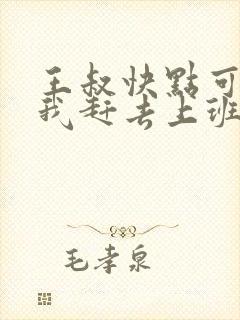 王叔快點可
我赶去上班
毛孝泉